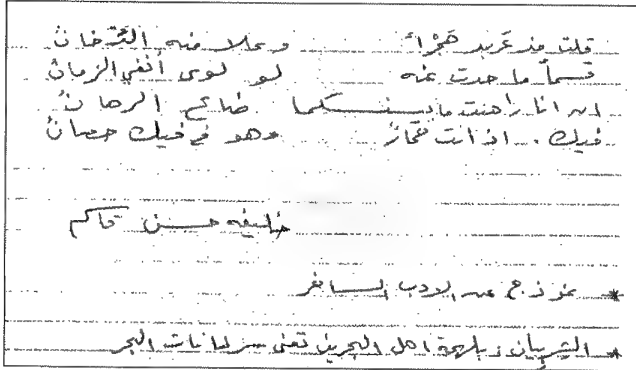 قلت مذ عربد هجراً وعلا منه الدخان
قسماً ما حدت عنه لو لوى أنفي الزمان
ان انا راهنت ما بينكما ضاع الرهان
فيك . اذ انت وهو في فيك حصان
خليفه حسن قاسم
* نموذج من الادب الساخر
* بلهجة اهل البحرين تعني سرطانات البحر